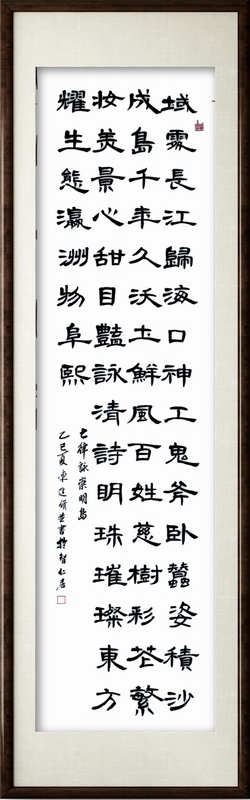 域處長江歸海口神工鬼斧臥蠶姿積沙
成島千年久沃土鮮風百姓慈樹彩花繁
妝美景心甜目豔詠清詩明珠璀璨東方
耀生態瀛洲物阜熙
七律詠崇明島
乙巳夏陳廷書於智仁居